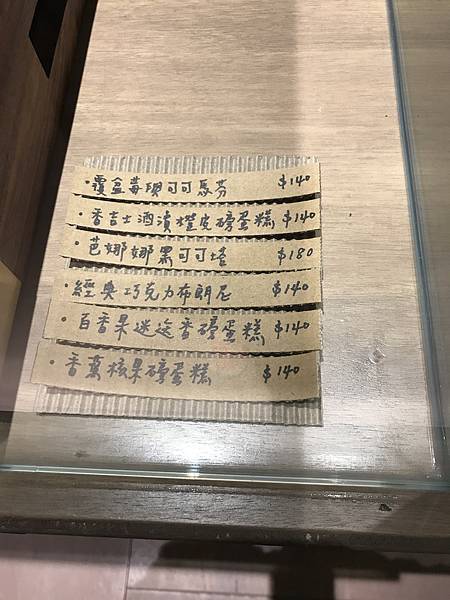 ・覆盆莓現可可馬芬 $140
・香吉士酒漬橙皮磅蛋糕 $140
・芭娜娜黑可可塔 $180
・經典巧克力布朗尼 $140
・百香果迷迭香磅蛋糕 $140
・香蕉核果磅蛋糕 $140